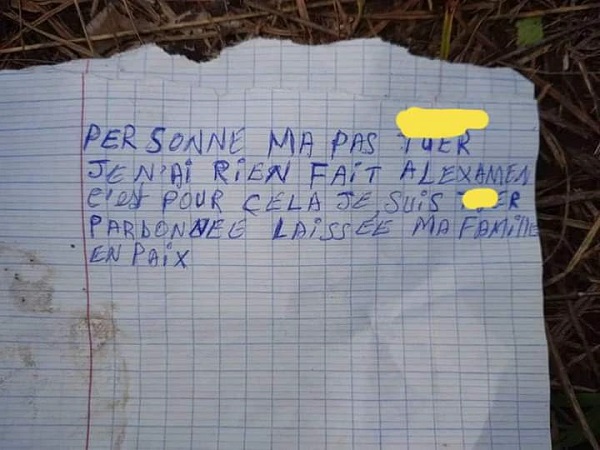 PERSONNE MA PAS TUER
JE N'AI RIEN FAIT ALEXAMEN
C'est POUR CELA JE SUIS ER
PARDONNEE LAISSEE MA FAMILLE
EN PAIX